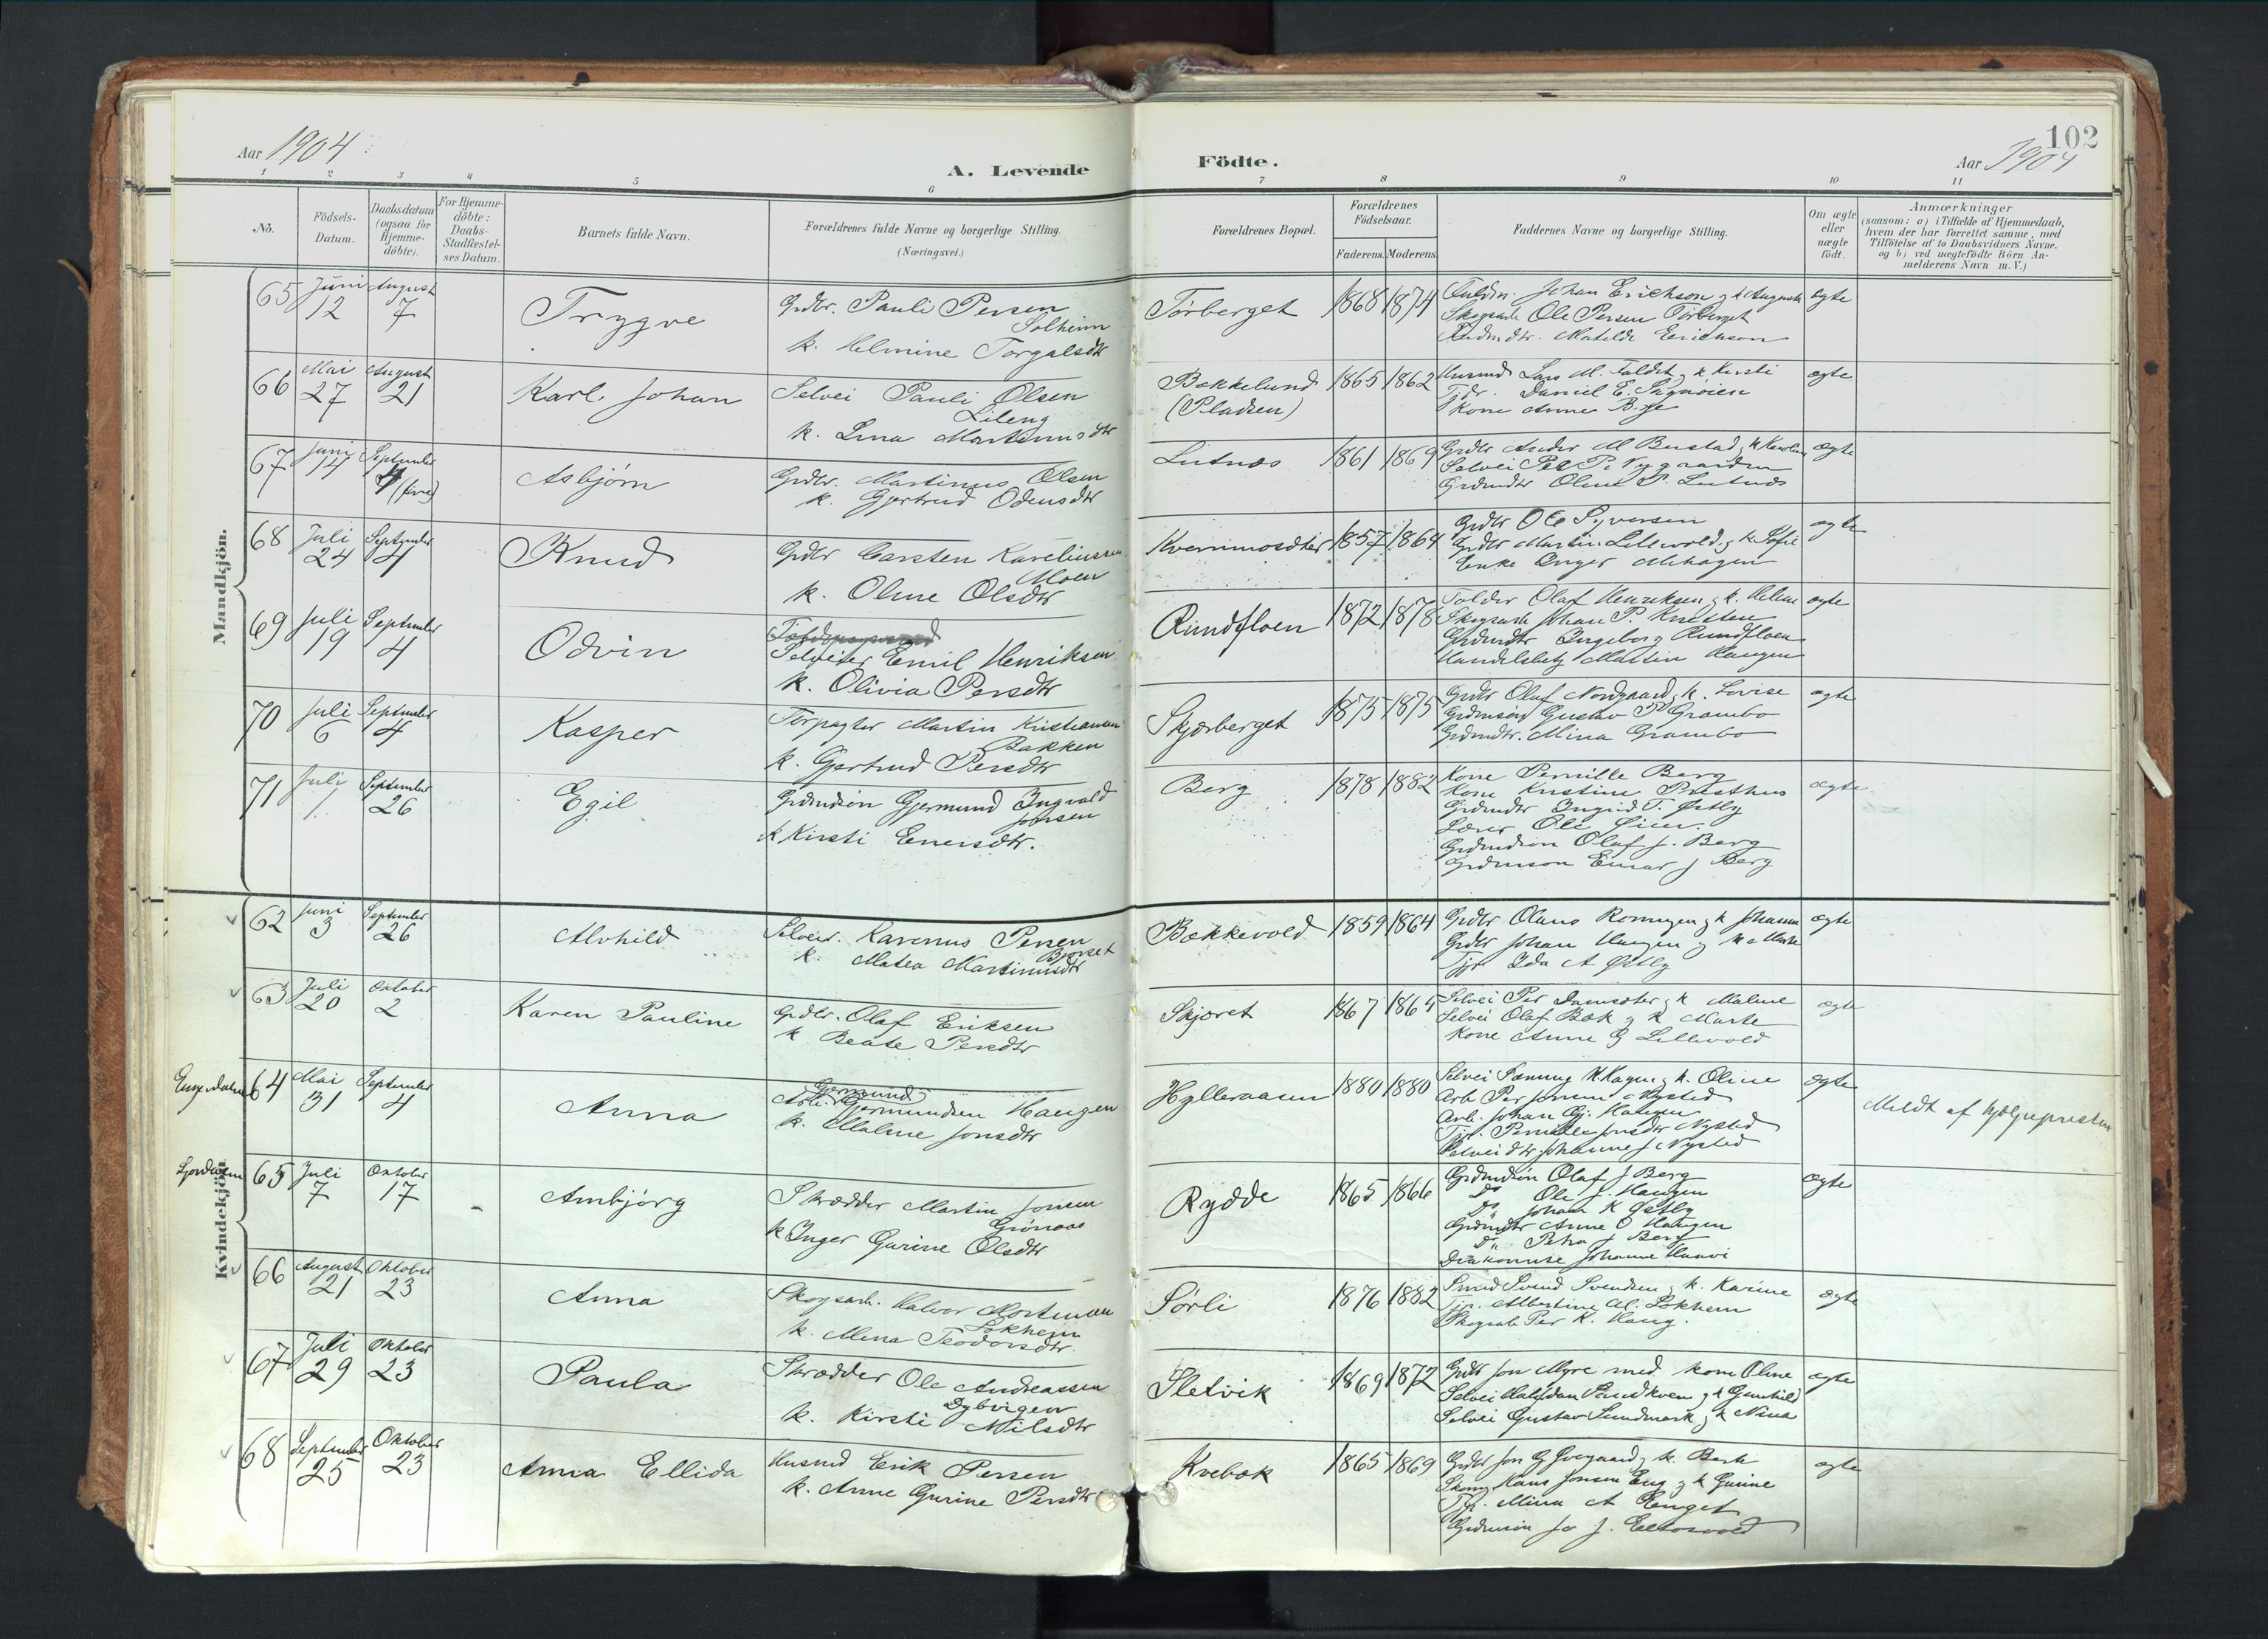 Aar 1904
A. Levende
Födte.
102
Aar 1904
1 2 3 4 5 6 7 8 9 10 11
No.
Födsels-
Datum.
Daabsdatum
(ogsaa for
Hjemme-
döbte).
For Hjemme-
döbte:
Daabs-
Stadfæstel-
ses Datum.
Barnets fulde Navn.
Forældrenes fulde Navne og borgerlige Stilling.
(Næringsvei.)
Forældrenes Bopæl.
Forældrenes
Födselsaar.
Faderens.
Moderens.
Faddernes Navne og borgerlige Stilling.
Om ægte
eller
uægte
födt.
Anmærkninger
(saasom: a) i Tilfælde af Hjemmedaab,
hvem der har forrettet samme, med
Tilföielse af to Daabsvidners Navne.
og b) ved uægtefödte Börn An-
melderens Navn m. V.)
Mandkjön.
65 Juni 12 August 7
Trygve
Grdbr. Pauli Persen
Solheim
k. Helmine Torgalsdtr
Törberget
1868 1874
Johan Erichson og k Augusta
Skogsarb Ole Persen Törberget
Matilde Erichson
ægte
66 Mai 27 August 21
Karl Johan
Selvei Pauli Olsen
Lileng
k. Lina Martinusdtr
Bækkelund
(Pladsen)
1865 1862
Husmd Lars M. Faldet og k Kirsti
Daniel E.
Kone Anne Bye
ægte
67 Juni 14 September 4 (fire)
Asbjörn
Grdbr. Martinus Olsen
k. Gjertrud Odensdtr
Lutnæs
1861 1869
Grdbr Ander M Bustad og k
Selvei Per P. Nygaarden
Grdmdtr Oline P. Lutnæs
ægte
68 Juli 24 September 4
Knud
Grdbr Carsten Kareliussen
Moen
k. Oline Olsdtr
Kvernmosæter
1857 1864
Grdbr Ole Syversen
Grdbr Martin Lillevold og k. Sofie
Enke Inger Mehagen
ægte
69 Juli 19 September 4
Odvin
Selveier Emil Henriksen
k. Olivia Persdtr
Rundfloen
1872 1878
Olaf Henriksen og k. Helene
Skogsarb Johan P. Knutsen
Grdmdtr Ingeborg Rundfloen
Handelsbetj Martin Haugen
ægte
70 Juli 6 September 4
Kasper
Forpagter Martin Kristiansen
Bakken
k. Gjertrud Persdtr
Skjærberget
1875 1875
Grdbr Olaf Nordgaard og k. Lovise
Grdmsön Gustav Grambo
Grdmdtr. Mina Grambo
ægte
71 Juli 1 September 26
Egil
Grdmdsön Gjermund Ingvald
Jonsen
k Kirsti Einersdtr.
Berg
1878 1882
Kone Pernille Berg
Kone Kristine Præsthus
Grdmdtr Ingrid T. Østby
Lærer Ole Øier
Grdmdsön Olaf J. Berg
Grdmson Einar J Berg
ægte
Kvindekjön.
62 Juni 3 September 26
Alvhild
Selveier. Karenus Persen
k. Matea Martinusdtr
Bækkevold
1859 1864
Grdbr Olaus Ronningen og k Johanna
Grdbr Johan Haugen og k
Tjp Ida A Østby
ægte
63 Juli 20 Oktober 2
Karen Pauline
Grdbr. Olaf Eriksen
k Beate Persdtr
Skjæret
1867 1864
Selvei Per Damsæter og k Maline
Selvei Olaf Bæk og k Marte
Kone Anne G Lillevold
ægte
64 Mai 31 September 4
Anna
Gjermund
Gjermundsen Haugen
k. Maline Jonsdtr
Hylleraasen
1880 1880
Selvei H. Hagen og k. Oline
Arb Per Jonsen Nysted
Arb. Johan Gj. Haugen
Tjp. Pernille Jonsdtr Nysted
Selveidtr Johanne J Nysted
ægte
Meldt af hjælpepresten
65 Juli 7 Oktober 17
Arnbjörg
Skrædder Martin Jonsen
Grönoos
k Inger Gurine Olsdtr
Rydde
1865 1866
Grdmdsön Olaf J Berg
Do Ole J. Haugen
Do Johan K Østby
Grdmdtr Anne O Haugen
Do Petra J Berg
Diakonisse Johanne Haavi
ægte
66 August 21 Oktober 23
Anna
Skogsarb. Halvor Mortensen
Lökheim
k. Mina Teodorsdtr.
Sörli
1876 1882
Smed Svend Svendsen og k. Karine
Tjp. Albertine Al. Lökheim
Skogsarb Per K. Haug.
ægte
67 Juli 29 Oktober 23
Paula
Skrædder Ole Andreassen
Dybvigen
k. Kirsti Nilsdtr
Sletvik
1869 1872
Grdbr Jon Myre med kone Oline
Selvei Halfdan Sandkven og k Gunhild
Selvei Gustav Sundmark og k Nina
ægte
68 September 25 Oktober 23
Anna Ellida
Husmd Erik Persen
k. Anne Gurine Persdtr
Kvebæk
1865 1869
Grdbr Jon G og k. Berte
Hans Jonsen Eng og k Gurine
Tjp. Mina A Enget
Grdmsön Jo J.
ægte